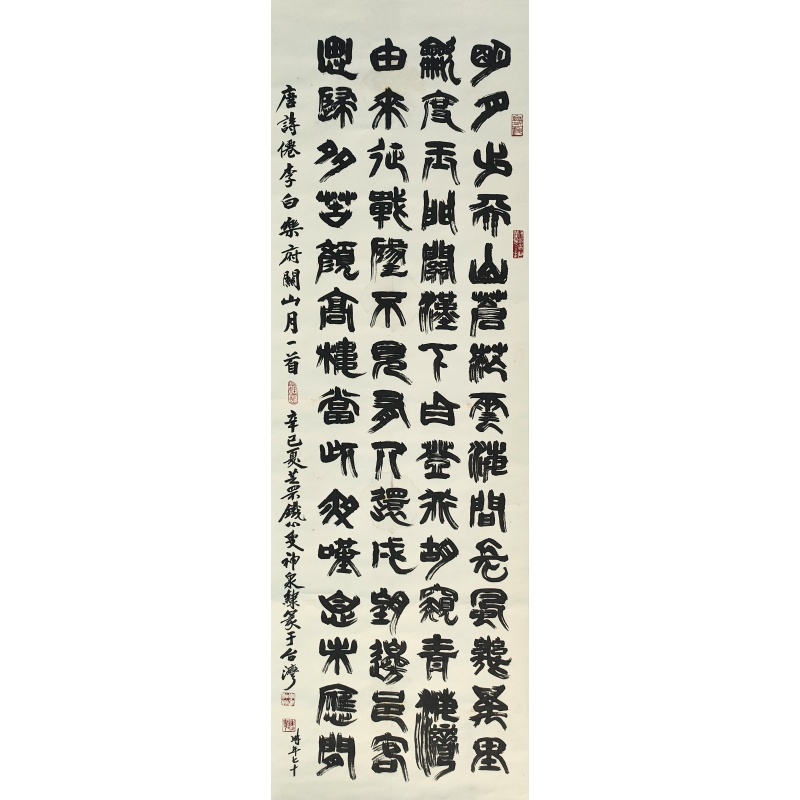 明月出天山蒼茫雲海間長風幾萬里
龡度玉門關漢下白登道胡窺青海灣
由來征戰墬不見有人還戍望邊邑客
思歸多苦顏高樓當此夜嘆息未應閒
唐詩僊李白樂府關山月一首
辛巳夏芝罘鐵心叟神泉隸篆于台灣
時年七十